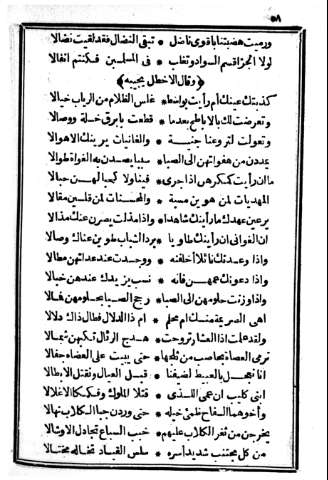 ٥٨
ورميت هضبتنا بأفوق ناصل * تبغى النضال فقد لقيت نضالا
لولا الجزا قسم السواد وتغلب * فى المسلمين فكنتم أنفالا
﴿وقال الاخطل يجيبه﴾
كذبتك عينك أم رأيت بواسط * غلس الظلام من الرباب خيالا
وتعرضت لك بالاباطح بعدما * قطعت بأبرق خلة ووصالا
وتغولت لتروعنا جنية * والغانيات يرينك الاهوالا
يمددن من هفواتهن الى الصبا * سببا يصدن به الغواة طوالا
ما ان رأيت كمكرهن اذا جرى * فينا ولا كحبالهن حبالا
المهديات لمن هوين مسبة * والمحسنات لمن قلين مقالا
يرعين عهدك ما رأينك شاهدا * واذا مذلت يصرن عنك مذالا
ان الغوانى ان رأينك طاويا * برد الشباب طوين عنك وصالا
واذا وعدنك نائلا أخلفنه * ووجدت عند عداتهن مطالا
واذا دعونك عمهن فانه * نسب يزيدك عندهن خبالا
واذا وزنت حلومهن الى الصبا * رجح الصبا بحلومهن فمالا
أهى الصريمة منك أم محلم * أم ذا الدلال فطال ذاك دلالا
ولقد علمت اذا العشار تروحت * هدج الرئال تكبهن شمالا
ترمى العضاه بحاصب من ثلجها * حتى يبيت على العضاه جفالا
انا نعجل بالعبيط لضيفنا * قبل العيال ونقتل الابطالا
ابنى كليب ان عمى اللذى * قتلا الملوك وفككا الاغلالا
وأخوهما السفاح ظمأ خيله * حتى وردن جبا الكلاب نهالا
يخرجن من ثغر الكلاب عليهم * خبب السباع تبادر الاوشالا
من كل مجتنب شديد أسره * سلس القياد تخاله مختالا